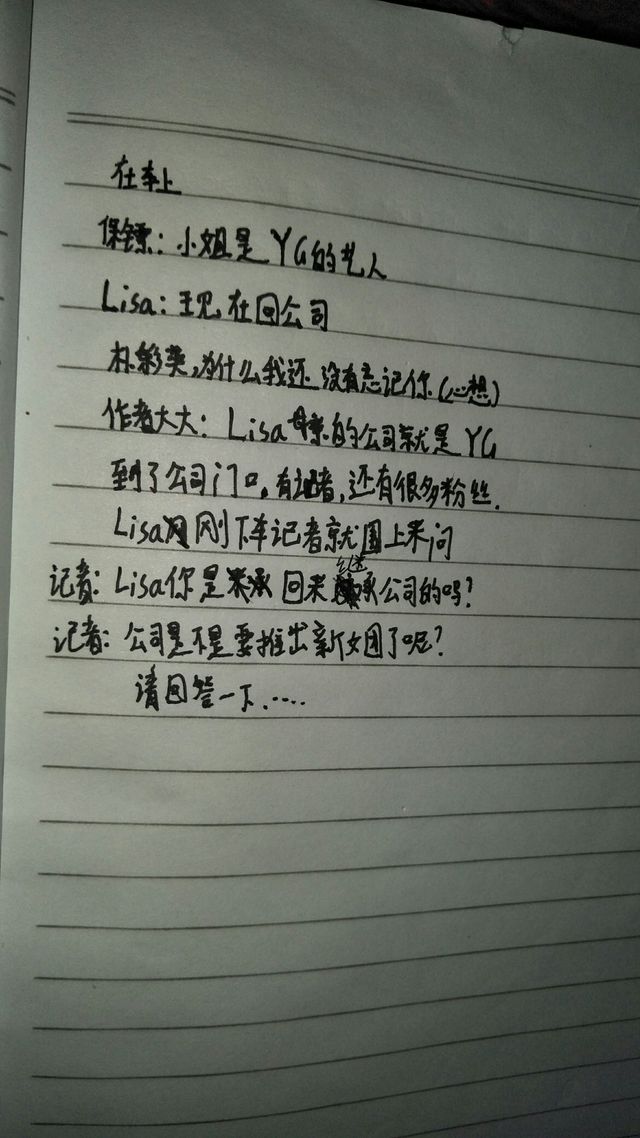 在车上
保镖：小姐是YG的艺人
Lisa：现在回公司
朴彩英，为什么我还没有忘记你（心想）
作者大大：Lisa母亲的公司就是YG
到了公司门口。有记者，还有很多粉丝.
Lisa刚下车记者就围上来问
记者：Lisa你是回来继承公司的吗？
记者：公司是不是要推出新女团了呢？
请回答一下.....